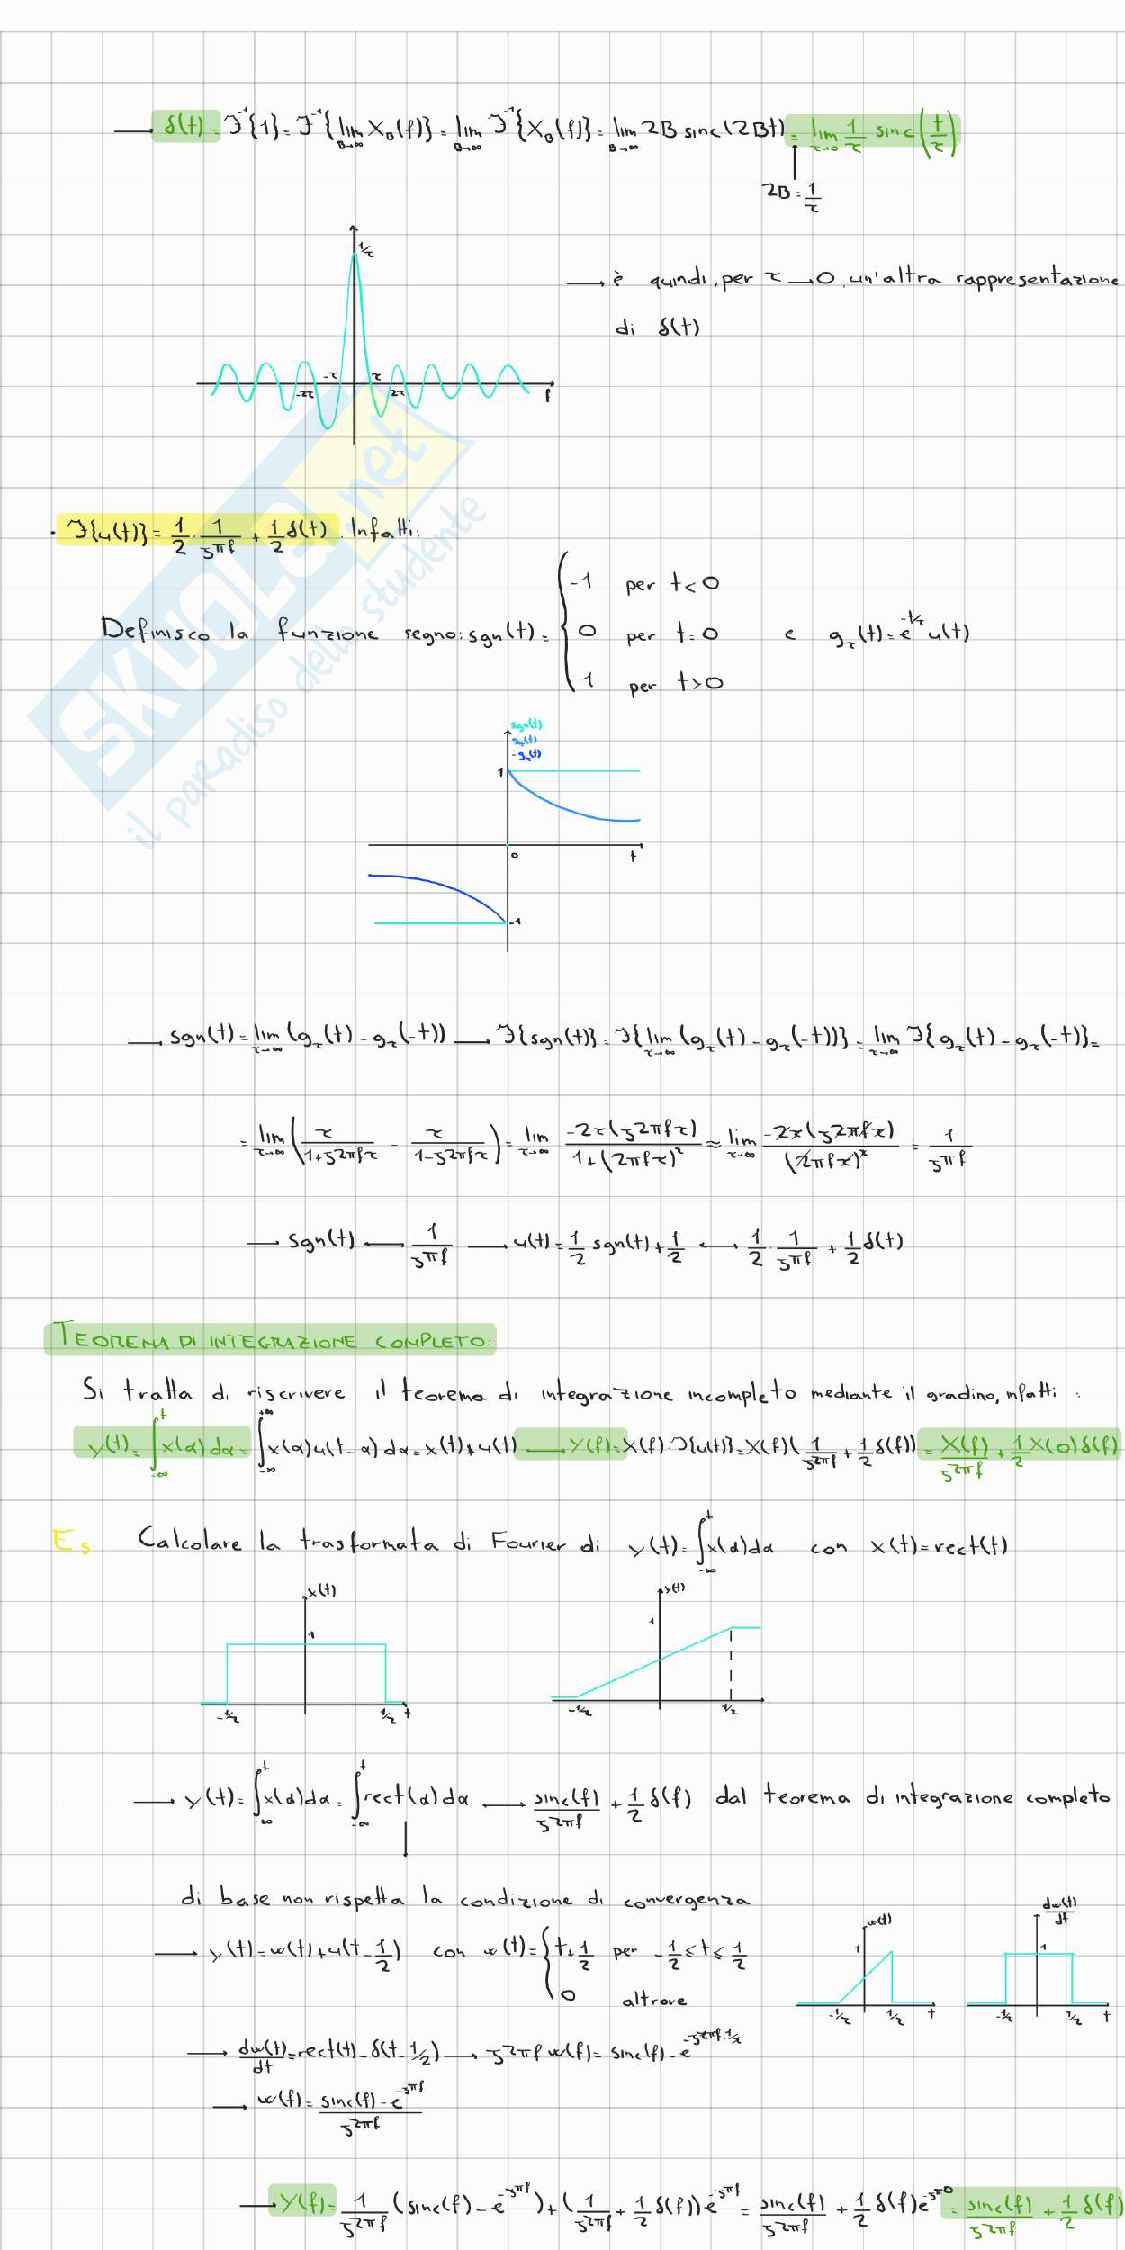 → δ(t) = ℱ⁻¹{1} = ℱ⁻¹{lim B→∞ X_B(f)} = lim B→∞ ℱ⁻¹{X_B(f)} = lim B→∞ 2B sinc(2Bt) = lim τ→0 1/τ sinc(t/τ)
2B = 1/τ
1/τ
→ è quindi, per τ→0, un'altra rappresentazione
di δ(t)
-τ τ
-2τ 2τ f
· ℱ{u(t)} = 1/2 · 1/jπf + 1/2 δ(t). Infatti:
-1 per t<0
Definisco la funzione segno: sgn(t) = 0 per t=0 e g_τ(t) = e^(-t/τ) u(t)
1 per t>0
sgn(t)
g_τ(t)
-g_τ(t)
1
0 t
-1
→ sgn(t) = lim τ→∞ (g_τ(t) - g_τ(-t)) → ℱ{sgn(t)} = ℱ{lim τ→∞ (g_τ(t) - g_τ(-t))} = lim τ→∞ ℱ{g_τ(t) - g_τ(-t)} =
= lim τ→∞ (τ/(1+j2πfτ) - τ/(1-j2πfτ)) = lim τ→∞ -2τ(j2πfτ)/(1+(2πfτ)²) ≈ lim τ→∞ -2τ(j2πfτ)/(2πfτ)² = 1/jπf
→ sgn(t) ↔ 1/jπf → u(t) = 1/2 sgn(t) + 1/2 ↔ 1/2 · 1/jπf + 1/2 δ(t)
TEOREMA DI INTEGRAZIONE COMPLETO
Si tratta di riscrivere il teorema di integrazione incompleto mediante il gradino, infatti:
y(t) = ∫_-∞^t x(α)dα = ∫_-∞^+∞ x(α)u(t-α)dα = x(t)*u(t) → Y(f) = X(f)·ℱ{u(t)} = X(f)(1/j2πf + 1/2 δ(f)) = X(f)/j2πf + 1/2 X(0)δ(f)
Es Calcolare la trasformata di Fourier di y(t) = ∫_-∞^t x(α)dα con x(t) = rect(t)
x(t) y(t)
1 1
-1/2 1/2 t -1/2 1/2
→ y(t) = ∫_-∞^t x(α)dα = ∫_-∞^t rect(α)dα → sinc(f)/j2πf + 1/2 δ(f) dal teorema di integrazione completo
di base non rispetta la condizione di convergenza
→ y(t) = w(t) + u(t-1/2) con w(t) = t+1/2 per -1/2 ≤ t ≤ 1/2
0 altrove
w(t) dw(t)/dt
1 1
-1/2 1/2 t -1/2 1/2 t
→ dw(t)/dt = rect(t) - δ(t-1/2) → j2πf W(f) = sinc(f) - e^(-j2πf·1/2)
→ W(f) = (sinc(f) - e^(-jπf))/j2πf
→ Y(f) = 1/j2πf (sinc(f) - e^(-jπf)) + (1/j2πf + 1/2 δ(f)) e^(-jπf) = sinc(f)/j2πf + 1/2 δ(f)e^(-jπ0) = sinc(f)/j2πf + 1/2 δ(f)
SKUOLA.net
il paradiso dello studente